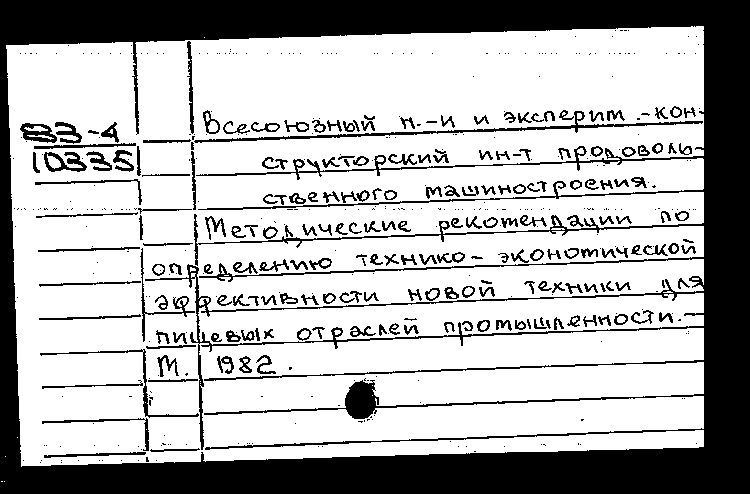 83-4
10335
Всесоюзный н.-и и эксперим.-кон-
структорский ин-т продоволь-
ственного машиностроения.
Методические рекомендации по
определению технико-экономической
эффективности новой техники для
пищевых отраслей промышленности.-
М. 1982.